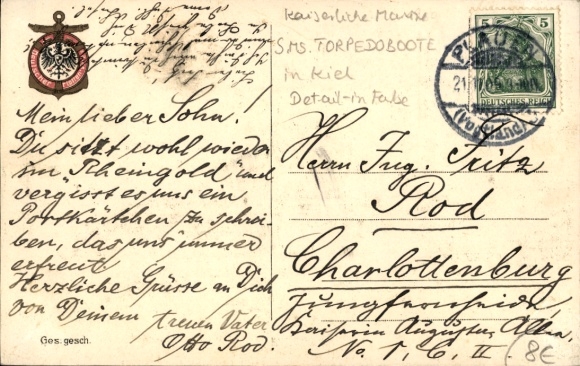 Kaiserliche Marine
S.M.S. TORPEDOBOOTE
in Kiel
Detail-in Farbe
5 5
DEUTSCHES REICH
PLAUEN
(Vogtland)
Mein lieber Sohn!
Du sitzt wohl wieder
im "Rheingold" und
vergisst es uns ein
Postkärtchen zu schrei-
ben, das uns immer
erfreut
Herzliche Grüsse an Dich
von Deinem
treuen Vater
Otto Rod.
Ges. gesch.
Herrn Ing. Fritz
Rod
Charlottenburg
Jungfernheide,
Kaiserin Augusta, Allee,
No. 1, C. II.
8€